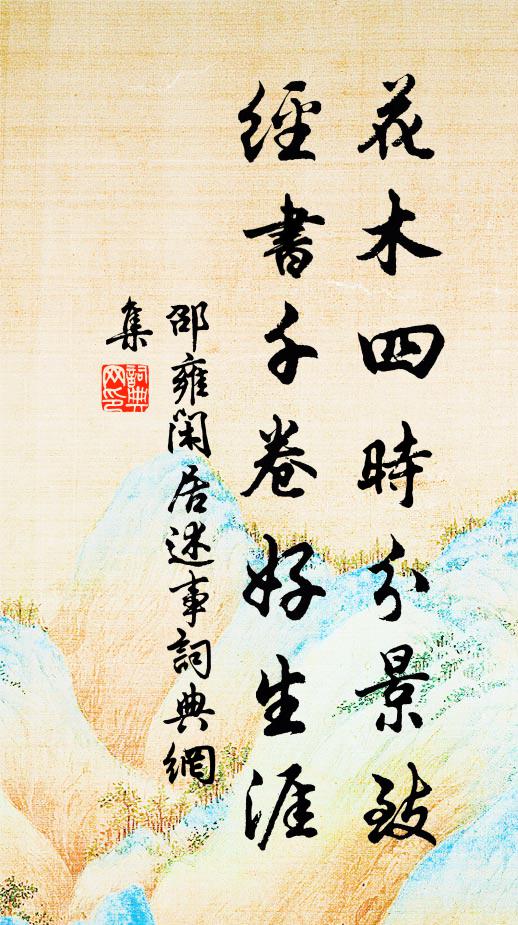 花木四時分景致
經書千卷好生涯
邵雍閑居述事詞典網
集
詞典網印